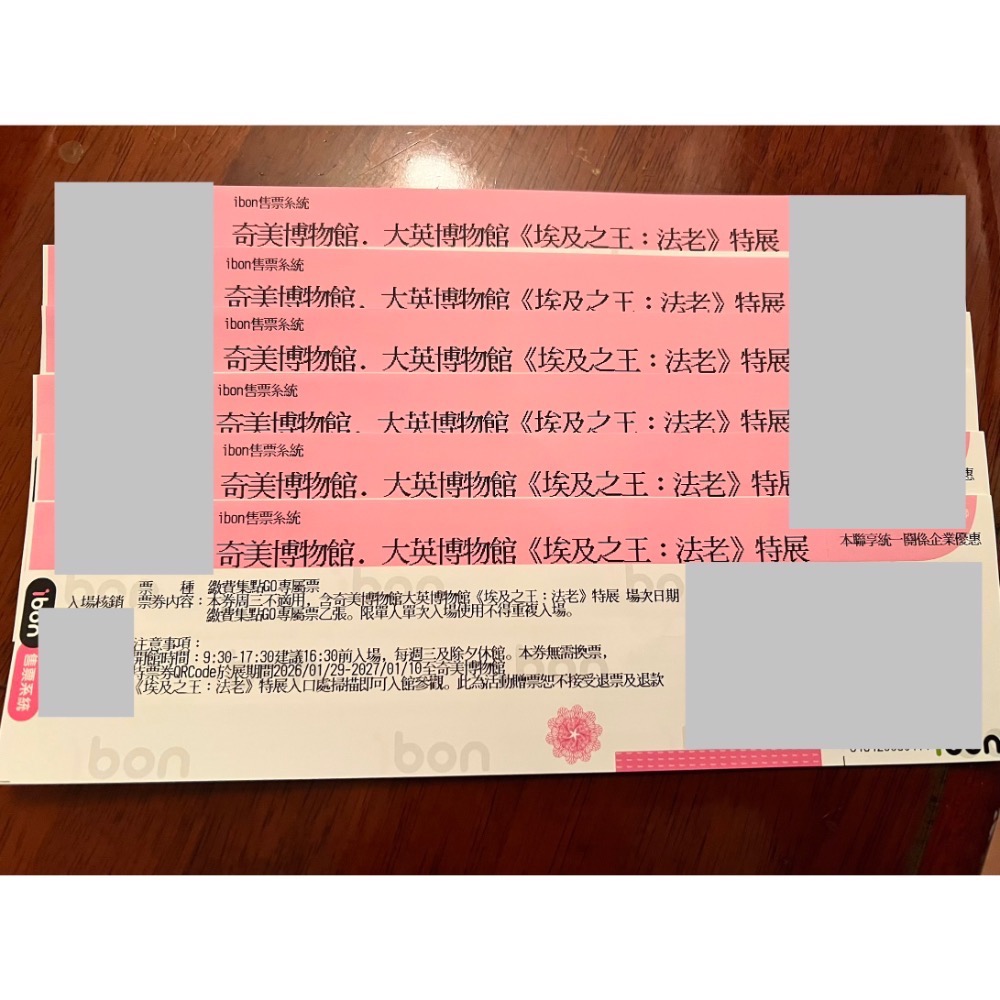 ibon售票系統
奇美博物館. 大英博物館《埃及之王：法老》特展
ibon售票系統
奇美博物館. 大英博物館《埃及之王：法老》特展
ibon售票系統
奇美博物館. 大英博物館《埃及之王：法老》特展
ibon售票系統
奇美博物館. 大英博物館《埃及之王：法老》特展
ibon售票系統
奇美博物館. 大英博物館《埃及之王：法老》特展
惠
ibon售票系統
奇美博物館. 大英博物館《埃及之王：法老》特展
本聯享統一關係企業優惠
票 種 繳費集點GO專屬票
入場核銷 票券內容：本券周三不適用，含奇美博物館大英博物館《埃及之王：法老》特展 場次日期
繳費集點GO專屬票乙張。限單人單次入場使用不得重複入場。
注意事項：
開館時間：9:30-17:30建議16:30前入場，每週三及除夕休館。本券無需換票，
持票券QRCode於展期間2026/01/29-2027/01/10至奇美博物館
《埃及之王：法老》特展入口處掃描即可入館參觀。此為活動贈票恕不接受退票及退款
ibon
售票系統
ibon
ibon
ibon